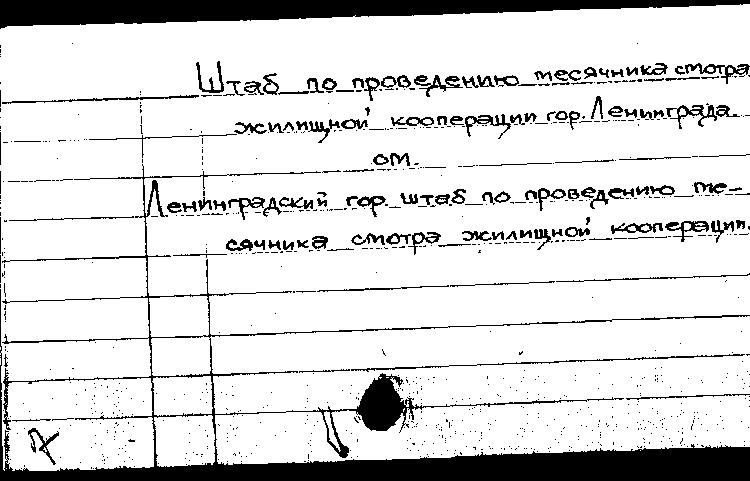 Штаб по проведению месячника смотра
жилищной кооперации гор. Ленинграда.
см.
Ленинградский гор. штаб по проведению ме-
сячника смотра жилищной кооперации.